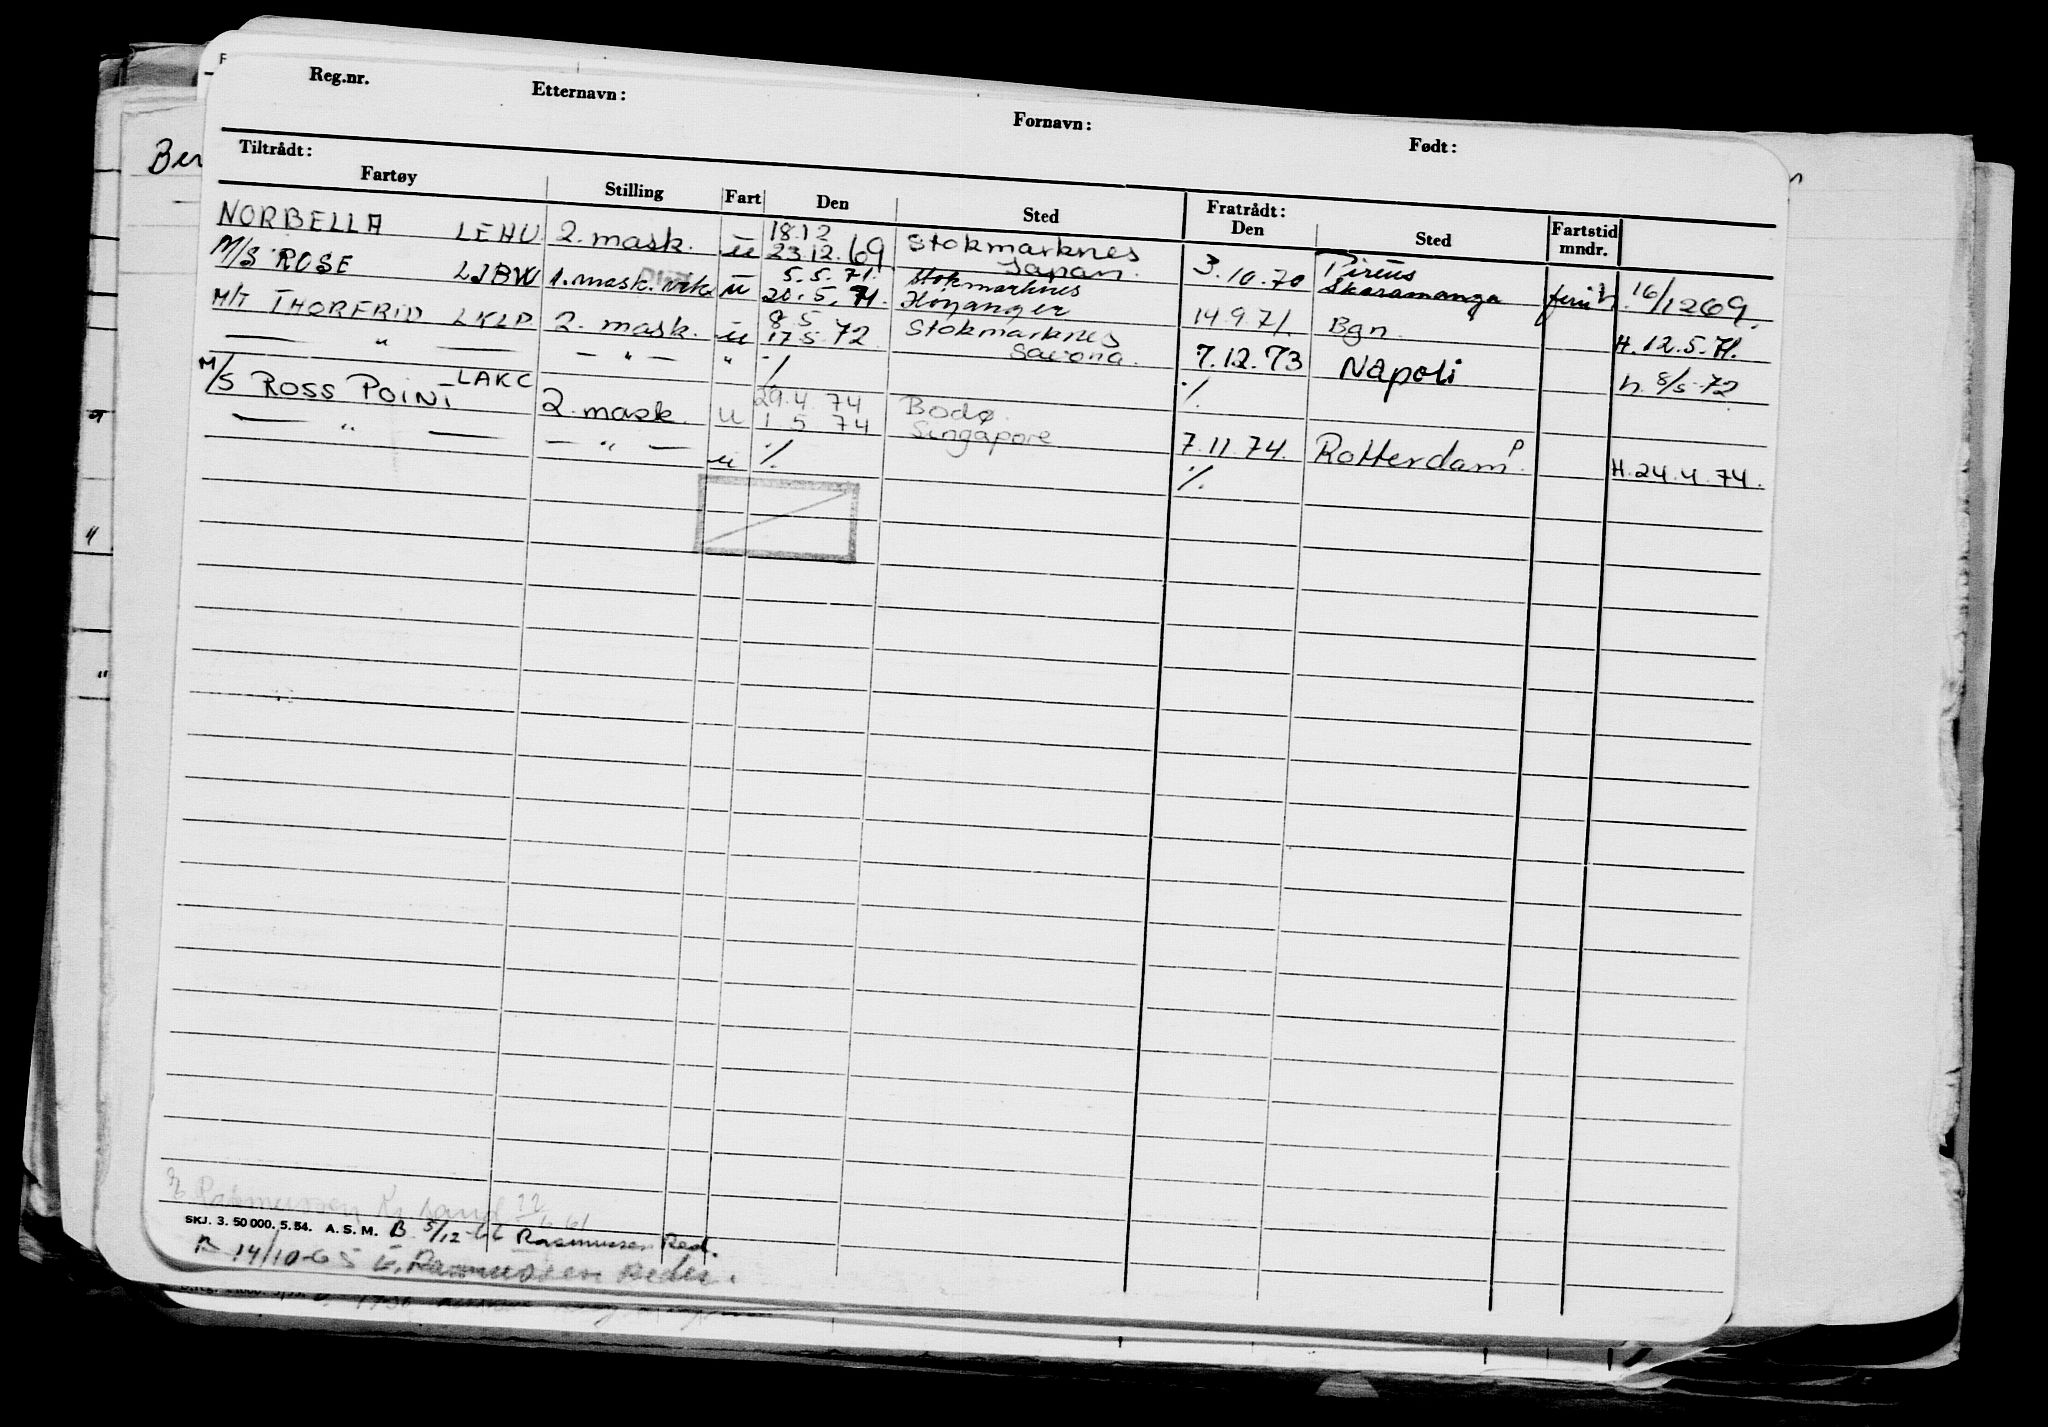 Reg.nr. Etternavn: Fornavn: Født:
Ber
Tiltrådt: Fratrådt:
Fartøy Stilling Fart Den Sted Den Sted Fartstid mndr.
NORBELLA LEHU 2. mask. u 18.12 Stokmarknes
23.12.69 Japan. 3.10.70 Pireus Skaramanga h. 16/12 69.
M/S ROSE LJBW 1. mask. vik u 5.5.71. Stokmarknes
20.5.71. Høyanger 14.9.71. Bgn. H. 12.5.71.
M/T THORFRID LKLP 2. mask. u 8.5 Stokmarknes
17.5.72 Savona. 7.12.73 Napoli h. 8/5-72
— " — — " — " ·/. ·/.
M/S ROSS POINT LAKC 2. mask. u 29.4.74 Bodø.
1 5 74 Singapore 7.11.74. Rotterdam P. H. 24.4.74.
— " — — " — u ·/. ·/.
Rasmussen Kr.sand
SKJ. 3. 50 000. 5. 54. A. S. M. B 5/12-66 Rasmussen Red.
B 14/10-65 v. Rasmussen Rederi.